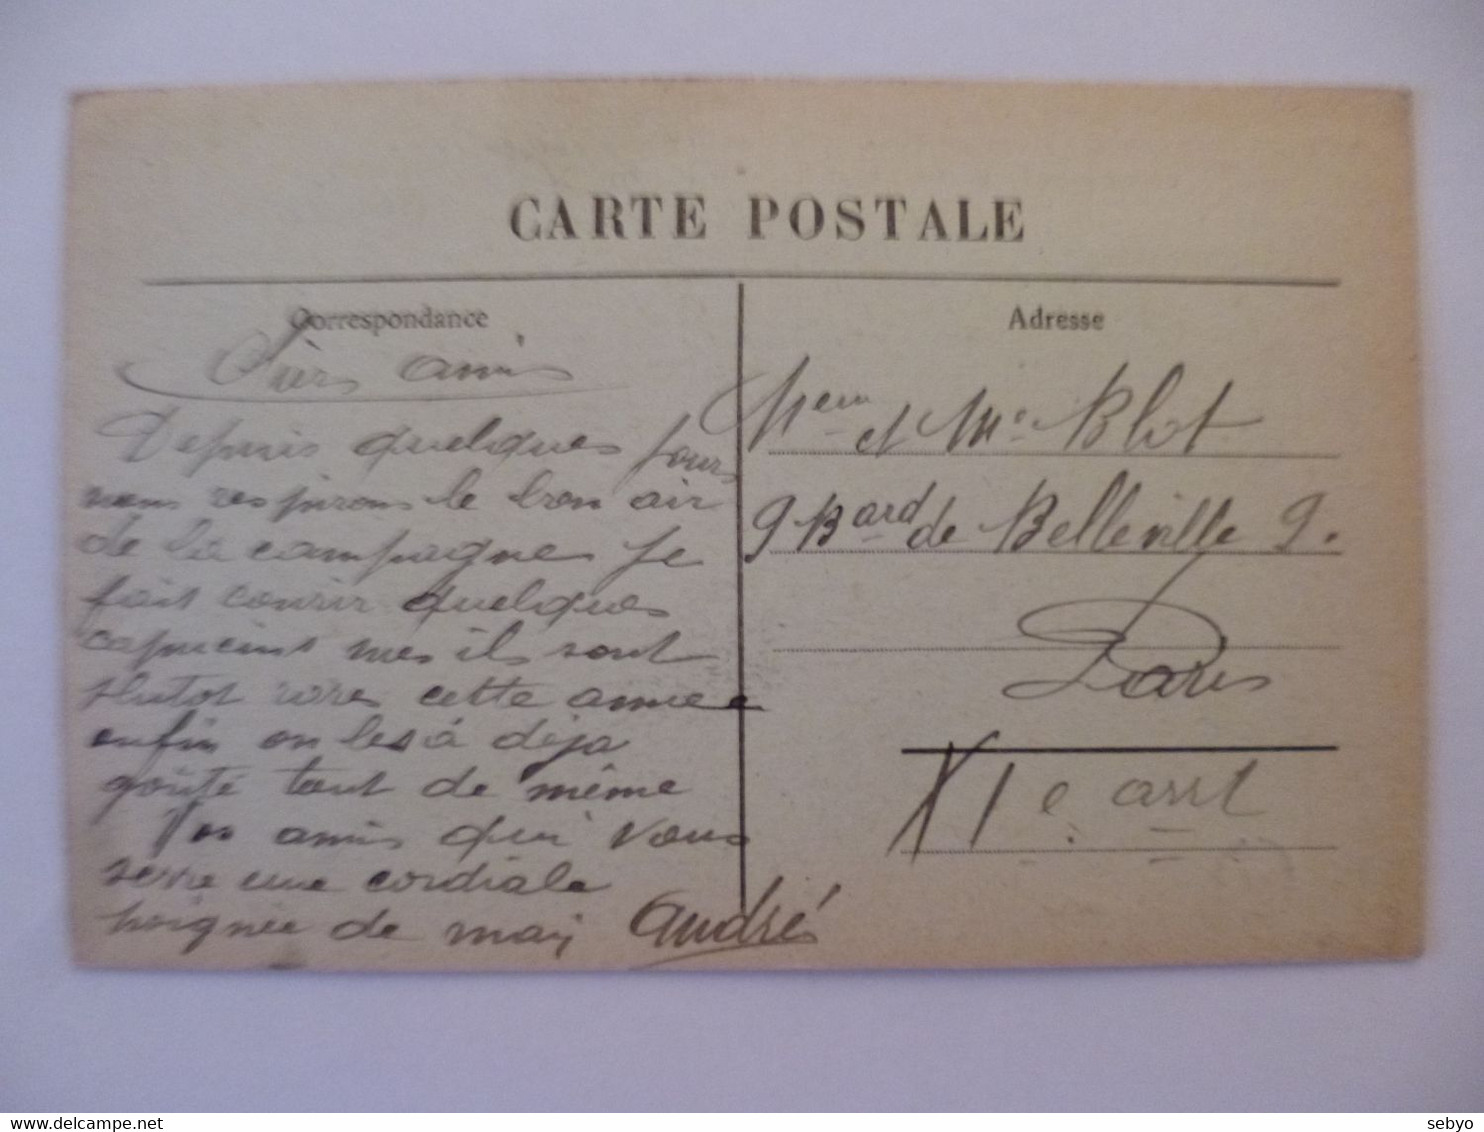 CARTE POSTALE
Correspondance
Chers amis
Depuis quelques jours
nous respirons le bon air
de la campagne je
fait courir quelques
mes ils sont
plutot rares cette année
enfin on les à déja
goûté tout de même
Vos amis qui vous
serre une cordiale
poignée de main André
Adresse
et Me Blot
9 Bard de Belleville 9.
Paris
XIe arrt
delcampe.net
sebyo